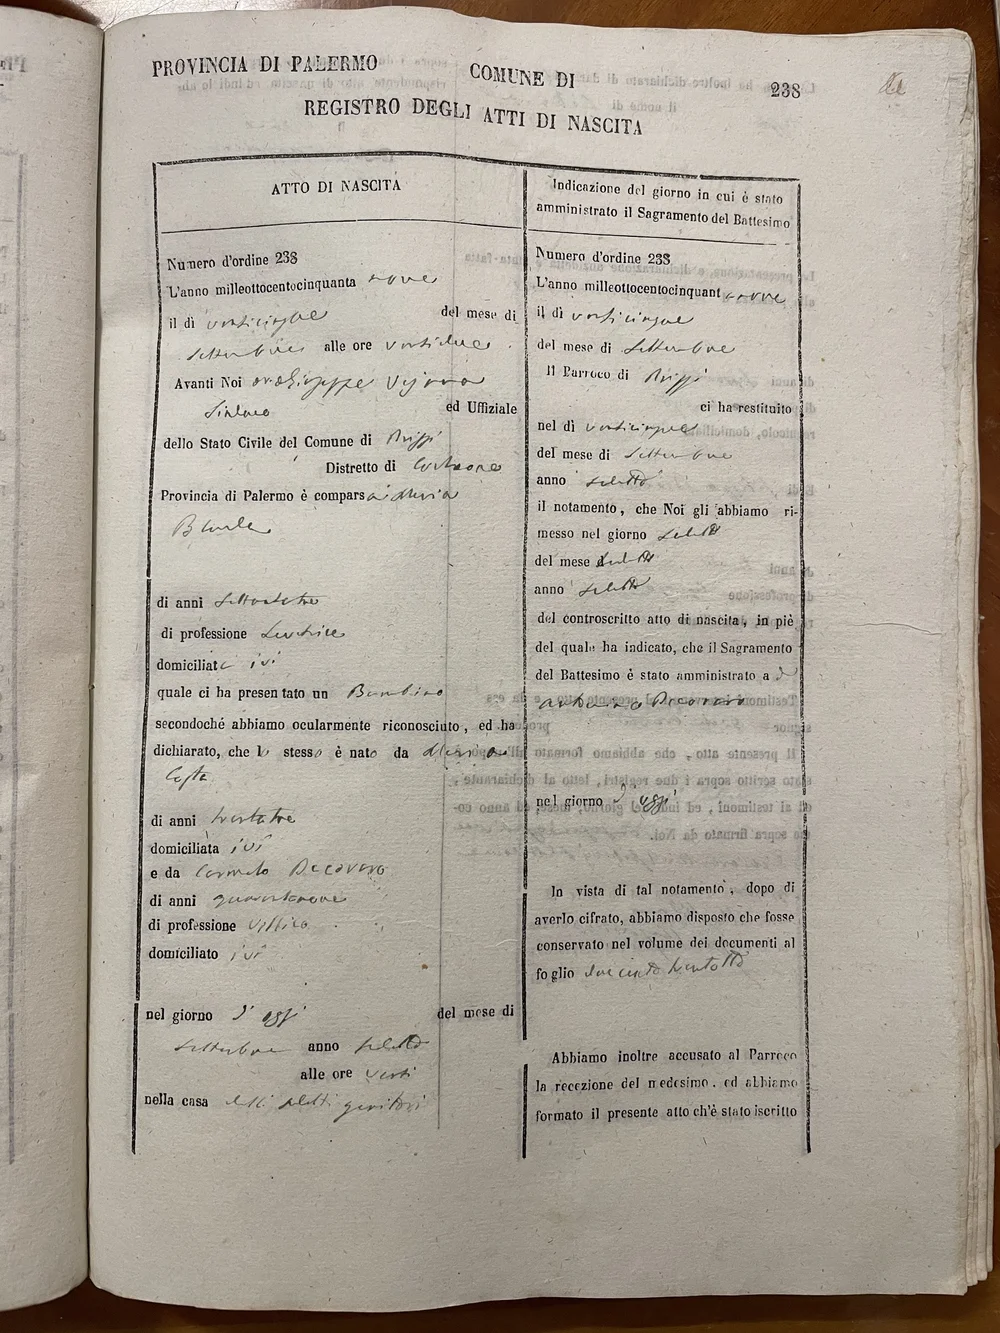 PROVINCIA DI PALERMO COMUNE DI 238
REGISTRO DEGLI ATTI DI NASCITA
ATTO DI NASCITA
Numero d'ordine 238
L'anno milleottocentocinquanta nove
il dì venticinque del mese di
Settembre alle ore ventidue
Avanti Noi Giuseppe
Sindaco ed Uffiziale
dello Stato Civile del Comune di Prizzi
Distretto di Corleone
Provincia di Palermo è compars
di anni
di professione Levatrice
domiciliata ivi
quale ci ha presentato un Bambino
secondoché abbiamo ocularmente riconosciuto, ed ha
dichiarato, che lo stesso è nato da
Costa
di anni trentatre
domiciliata ivi
e da Carmelo Pecoraro
di anni quarantanove
di professione Villico
domiciliato ivi
nel giorno d'oggi del mese di
Settembre anno suddetto
alle ore venti
nella casa delli suddetti genitori
Indicazione del giorno in cui è stato
amministrato il Sagramento del Battesimo
Numero d'ordine 238
L'anno milleottocentocinquant nove
il dì venticinque
del mese di Settembre
Il Parroco di Prizzi
ci ha restituito
nel dì venticinque
del mese di Settembre
anno suddetto
il notamento, che Noi gli abbiamo ri-
messo nel giorno suddetto
del mese suddetto
anno suddetto
del controscritto atto di nascita, in piè
del quale ha indicato, che il Sagramento
del Battesimo è stato amministrato a d
Pecoraro
nel giorno d'oggi
In vista di tal notamento, dopo di
averlo cifrato, abbiamo disposto che fosse
conservato nel volume dei documenti al
foglio duecento trentotto
Abbiamo inoltre accusato al Parroco
la recezione del medesimo, ed abbiamo
formato il presente atto ch'è stato iscritto